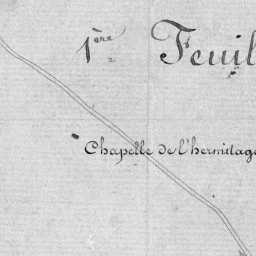 1ère Feuil
Chapelle de l'hermitage